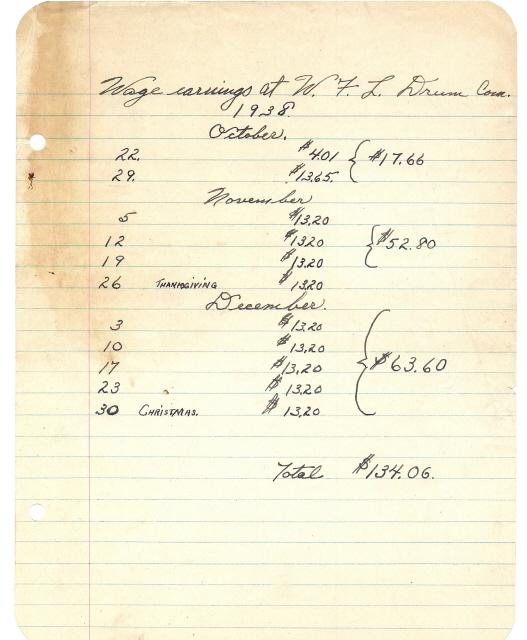 Wage earnings at W. F. L. Drum Com.
1938.
October.
22. $4.01 { $17.66
29. $13.65.
November
5 $13.20
12 $13.20 { $52.80
19 $13.20
26 THANKSGIVING $13.20
December.
3 $13.20
10 $13.20
17 $13.20 { $63.60
23 $13.20
30 CHRISTMAS. $13.20
Total $134.06.